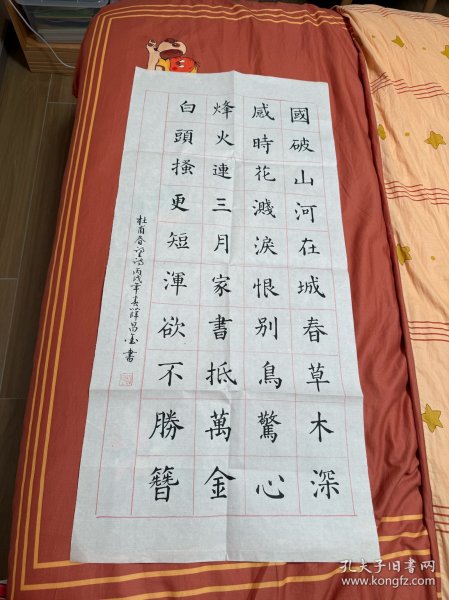 國破山河在城春草木深
感時花濺淚恨別鳥驚心
烽火連三月家書抵萬金
白頭搔更短渾欲不勝簪
杜甫春望詩丙戌年春
書
孔夫子旧书网
www.kongfz.com